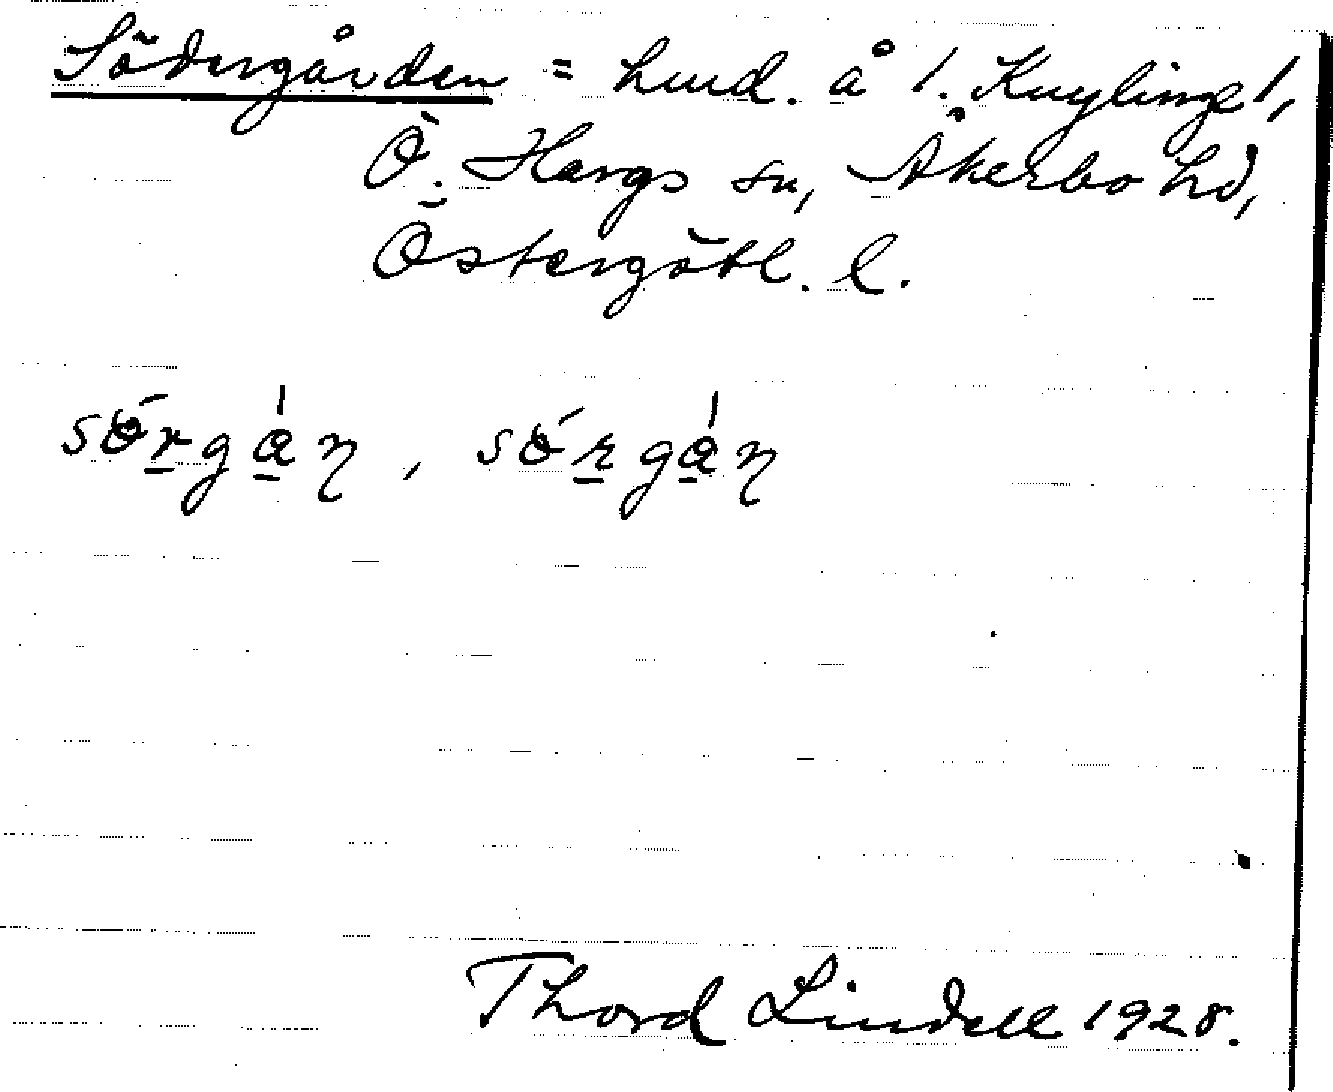 Södergården = hmd. å 1. Knylinge 1,
Ö. Hargs sn, Åkerbo hd,
Östergötl. l.
Thord Lindell 1928.